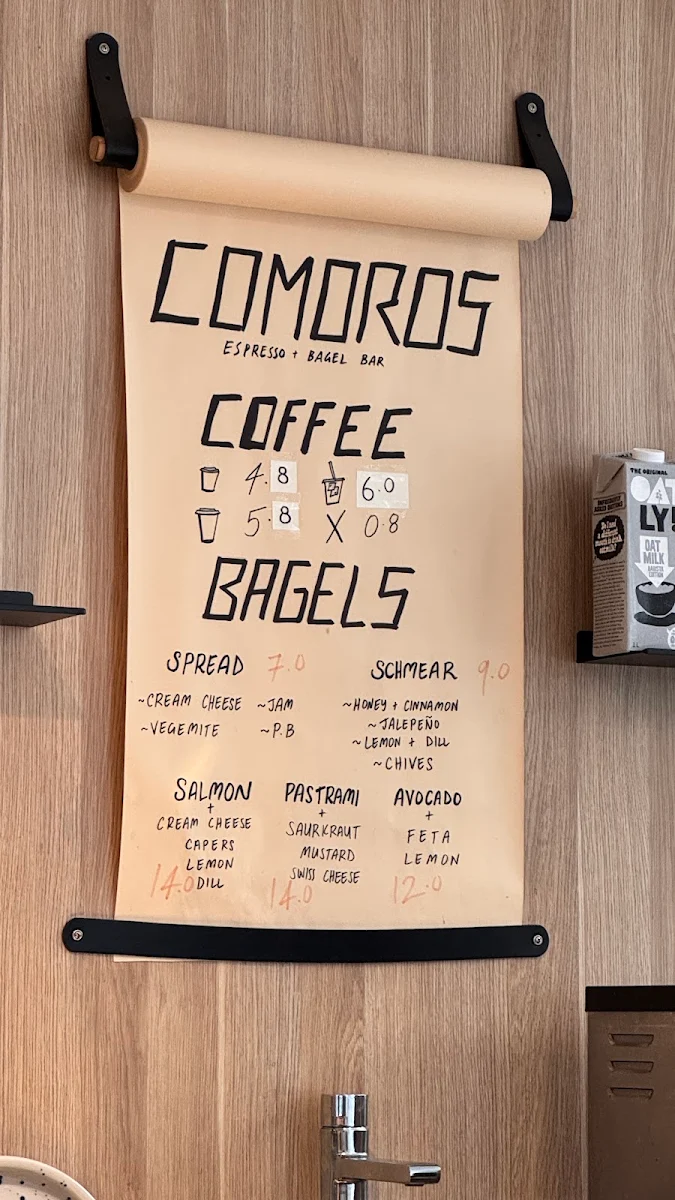 COMOROS
ESPRESSO + BAGEL BAR
COFFEE
4.8 6.0
5.8 X 0.8
BAGELS
SPREAD 7.0
~CREAM CHEESE ~JAM
~VEGEMITE ~P.B
SCHMEAR 9.0
~HONEY + CINNAMON
~JALEPEÑO
~LEMON + DILL
~CHIVES
SALMON
+
CREAM CHEESE
CAPERS
LEMON
DILL
14.0
PASTRAMI
+
SAURKRAUT
MUSTARD
SWISS CHEESE
14.0
AVOCADO
+
FETA
LEMON
12.0
THE ORIGINAL
OAT
LY!
OAT
MILK
BARISTA
EDITION